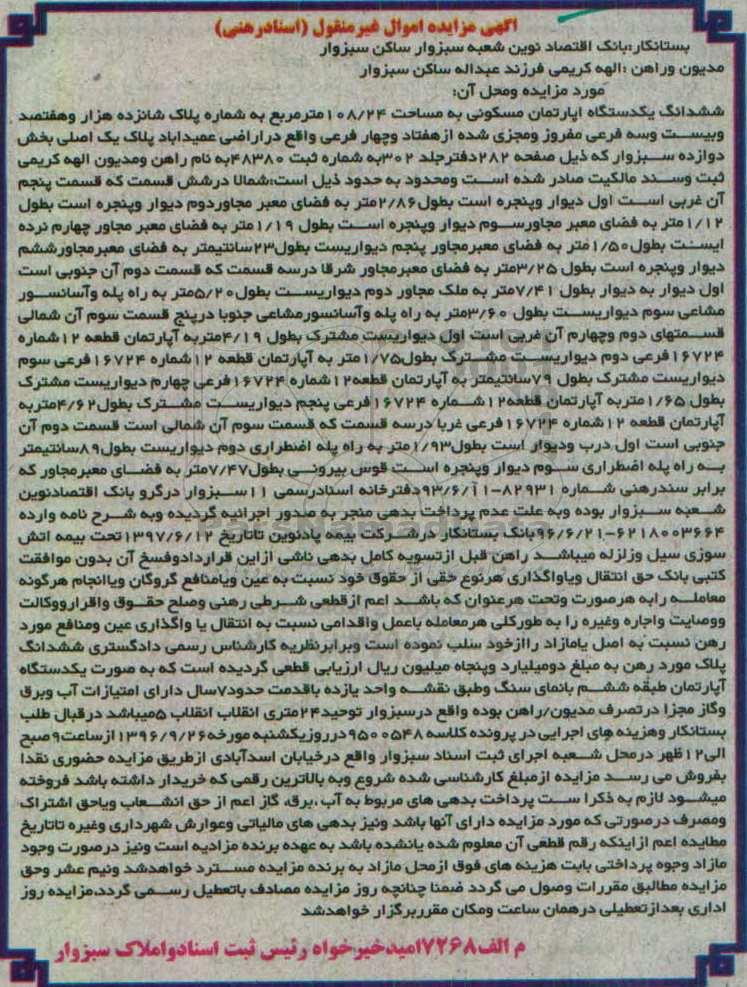 آگهی مزایده اموال غیرمنقول (اسنادرهنی)
بستانکار:بانک اقتصاد نوین شعبه سبزوار ساکن سبزوار
مدیون وراهن :الهه کریمی فرزند عبداله ساکن سبزوار
مورد مزایده ومحل آن:
ششدانگ یکدستگاه اپارتمان مسکونی به مساحت ۱۰۸/۲۴مترمربع به شماره پلاک شانزده هزار وهفتصد
وبیست وسه فرعی مفروز ومجزی شده ازهفتاد وچهار فرعی واقع دراراضی عمیداباد پلاک یک اصلی بخش
دوازده سبزوار که ذیل صفحه ۲۸۲دفترجلد ۳۰۲به شماره ثبت ۴۸۳۸۰به نام راهن ومدیون الهه کریمی
ثبت وسند مالکیت صادر شده است ومحدود به حدود ذیل است:شمالا درشش قسمت که قسمت پنجم
آن غربی است اول دیوار وپنجره است بطول۲/۸۶متر به فضای معبر مجاوردوم دیوار وپنجره است بطول
۱/۱۲متر به فضای معبر مجاورسوم دیوار وپنجره است بطول ۱/۱۹متر به فضای معبر مجاور چهارم نرده
ایست بطول۱/۵۰متر به فضای معبرمجاور پنجم دیواریست بطول۲۳سانتیمتر به فضای معبرمجاورششم
دیوار وپنجره است بطول ۳/۲۵متر به فضای معبرمجاور شرقا درسه قسمت که قسمت دوم آن جنوبی است
اول دیوار به دیوار بطول ۷/۴۱متر به ملک مجاور دوم دیواریست بطول۵/۲۰متر به راه پله وآسانسور
مشاعی سوم دیواریست بطول ۳/۶۰متر به راه پله وآسانسورمشاعی جنوبا درپنج قسمت سوم آن شمالی
قسمتهای دوم وچهارم آن غربی است اول دیواریست مشترک بطول ۴/۱۹متربه آپارتمان قطعه ۱۲شماره
۱۶۷۲۴فرعی دوم دیواریست مشترک بطول۱/۷۵متر به آپارتمان قطعه ۱۲شماره ۱۶۷۲۴فرعی سوم
دیواریست مشترک بطول ۷۹سانتیمتر به آپارتمان قطعه۱۲شماره ۱۶۷۲۴فرعی چهارم دیواریست مشترک
بطول ۱/۶۵متربه آپارتمان قطعه۱۲شماره ۱۶۷۲۴فرعی پنجم دیواریست مشترک بطول۴/۶۲متربه
آپارتمان قطعه ۱۲شماره ۱۶۷۲۴فرعی غربا درسه قسمت که قسمت سوم آن شمالی است قسمت دوم آن
جنوبی است اول درب ودیوار است بطول۱/۹۳متر به راه پله اضطراری دوم دیواریست بطول۸۹سانتیمتر
به راه پله اضطراری سوم دیوار وپنجره است قوس بیرونی بطول۷/۴۷متر به فضای معبرمجاور که
برابر سندرهنی شماره ۸۲۹۳۱-۹۳/۶/۱۱دفترخانه اسنادرسمی ۱۱سبزوار درگرو بانک اقتصادنوین
شعبه سبزوار بوده وبه علت عدم پرداخت بدهی منجر به صدور اجرائیه گردیده وبه شرح نامه وارده
۶۲۱۸۰۰۳۶۶۴-۹۶/۶/۲۱بانک بستانکار درشرکت بیمه پادنوین تاتاریخ ۱۳۹۷/۶/۱۲تحت بیمه اتش
سوزی سیل وزلزله میباشد راهن قبل ازتسویه کامل بدهی ناشی ازاین قراردادوفسخ آن بدون موافقت
کتبی بانک حق انتقال ویاواگذاری هرنوع حقی از حقوق خود نسبت به عین ویامنافع گروگان ویاانجام هرگونه
معامله رابه هرصورت وتحت هرعنوان که باشد اعم ازقطعی شرطی رهنی وصلح حقوق واقرارووکالت
ووصایت واجاره وغیره را به طورکلی هرمعامله یاعمل واقدامی نسبت به انتقال یا واگذاری عین ومنافع مورد
رهن نسبت به اصل یامازاد راازخود سلب نموده است وبرابرنظریه کارشناس رسمی دادگستری ششدانگ
پلاک مورد رهن به مبلغ دومیلیارد وپنجاه میلیون ریال ارزیابی قطعی گردیده است که به صورت یکدستگاه
آپارتمان طبقه ششم بانمای سنگ وطبق نقشه واحد یازده باقدمت حدود۷سال دارای امتیازات آب وبرق
وگاز مجزا درتصرف مدیون/راهن بوده واقع درسبزوار توحید۲۴متری انقلاب انقلاب ۵میباشد درقبال طلب
بستانکار وهزینه های اجرایی در پرونده کلاسه ۹۵۰۰۵۴۸درروزیکشنبه مورخه۱۳۹۶/۹/۲۶ازساعت۹صبح
الی۱۲ظهر درمحل شعبه اجرای ثبت اسناد سبزوار واقع درخیابان اسدآبادی ازطریق مزایده حضوری نقدا
بفروش می رسد مزایده ازمبلغ کارشناسی شده شروع وبه بالاترین رقمی که خریدار داشته باشد فروخته
میشود لازم به ذکرا ست پرداخت بدهی های مربوط به آب ،برق، گاز اعم از حق انشعاب ویاحق اشتراک
ومصرف درصورتی که مورد مزایده دارای آنها باشد ونیز بدهی های مالیاتی وعوارش شهرداری وغیره تاتاریخ
مطایده اعم ازاینکه رقم قطعی آن معلوم شده یانشده باشد به عهده برنده مزادیه است ونیز درصورت وجود
مازاد وجوه پرداختی بابت هزینه های فوق ازمحل مازاد به برنده مزایده مسترد خواهدشد ونیم عشر وحق
مزایده مطالبق مقررات وصول می گردد ضمنا چنانچه روز مزایده مصادف باتعطیل رسمی گردد،مزایده روز
اداری بعدازتعطیلی درهمان ساعت ومکان مقرربرگزار خواهدشد
م الف۷۲۶۸امیدخیرخواه رئیس ثبت اسنادواملاک سبزوار